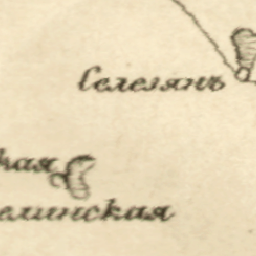 Селезянъ
кая
елинская